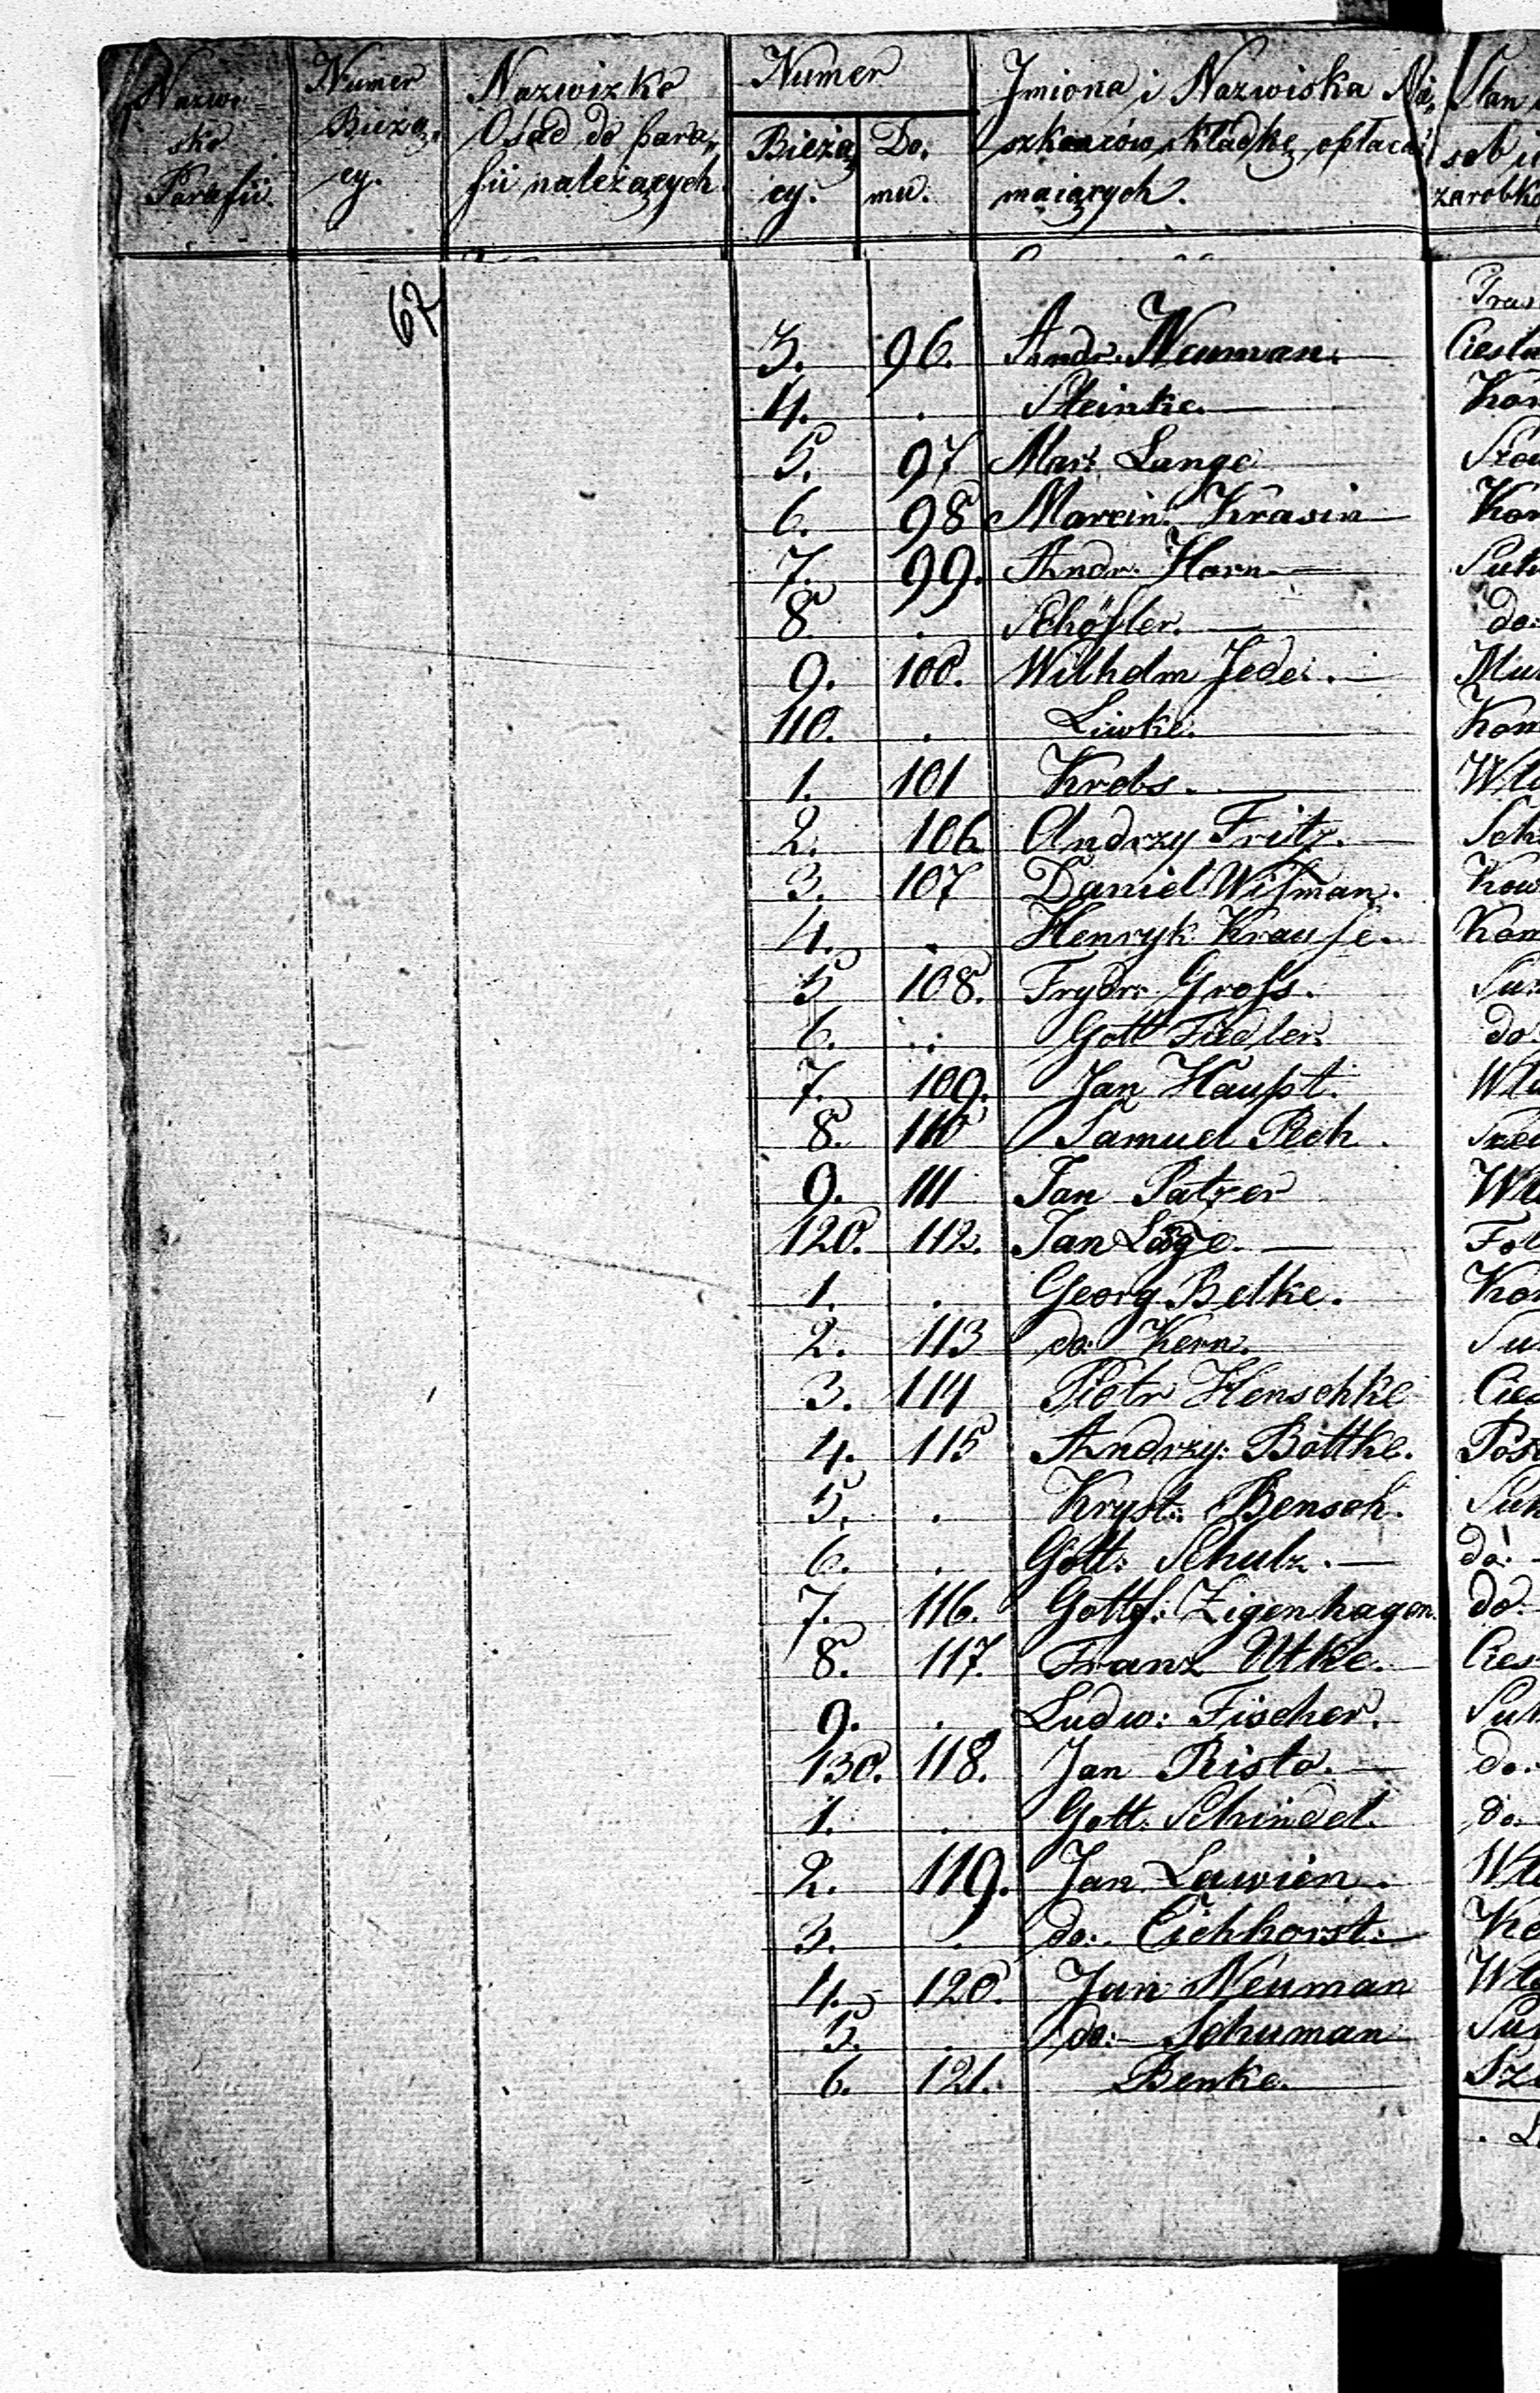 Nazwi-
sko
Parafii.
Numer
Bieżą-
cy.
Nazwizko
Osad do para-
fii należących
Numer
Bieżą-
cy.
Do-
mu.
Jmiona i Nazwiska Mi-
szkańców składkę opłacać
maiących.
Stan
sob
zarobko
62
3. 96. Andr. Neuman. Ciesla
4. . Steinke. Kom
5. 97 Mar: Lange
6. 98 Marcin Krasin Kom
7. 99. Andr. Harn
8. . Schöfler. do
9. 100. Wilhelm Jede. Mu
110. . Liwke. Kom
1. 101 Krebs. Wła
2. 106 Andrzy Fritz. Sch
3. 107 Daniel Wilman. Kow
4. . Henryk Krause. Kom
5 108. Frydr. Gross. Su
6. . Gott Fiedler. do.
7. 109. Jan Haupt. Wła
8. 110 Samuel Pech.
9. 111 Jan Patzer Wł
120. 112. Jan Läge. Fol
1. . Georg Belke. Kom
2. 113 do: Kern. Su
3. 114 Piotr Henschke Cies
4. 115 Andrzy: Bottke. Post
5. . Kryst: Bensch. Suk
6. . Gott: Schulz. do:
7. 116. Gottf: Zigenhagen. do.
8. 117. Franz Utke. Cies
9. . Ludw: Fischer. Suk
130. 118. Jan Risto. do.
1. . Gott: Schindel. do.
2. 119. Jan Lawien. Wła
3. . do: Eichhorst.
4. 120. Jan Neuman Wła
5. . do: Schuman Su
6. 121. Benke. Sz